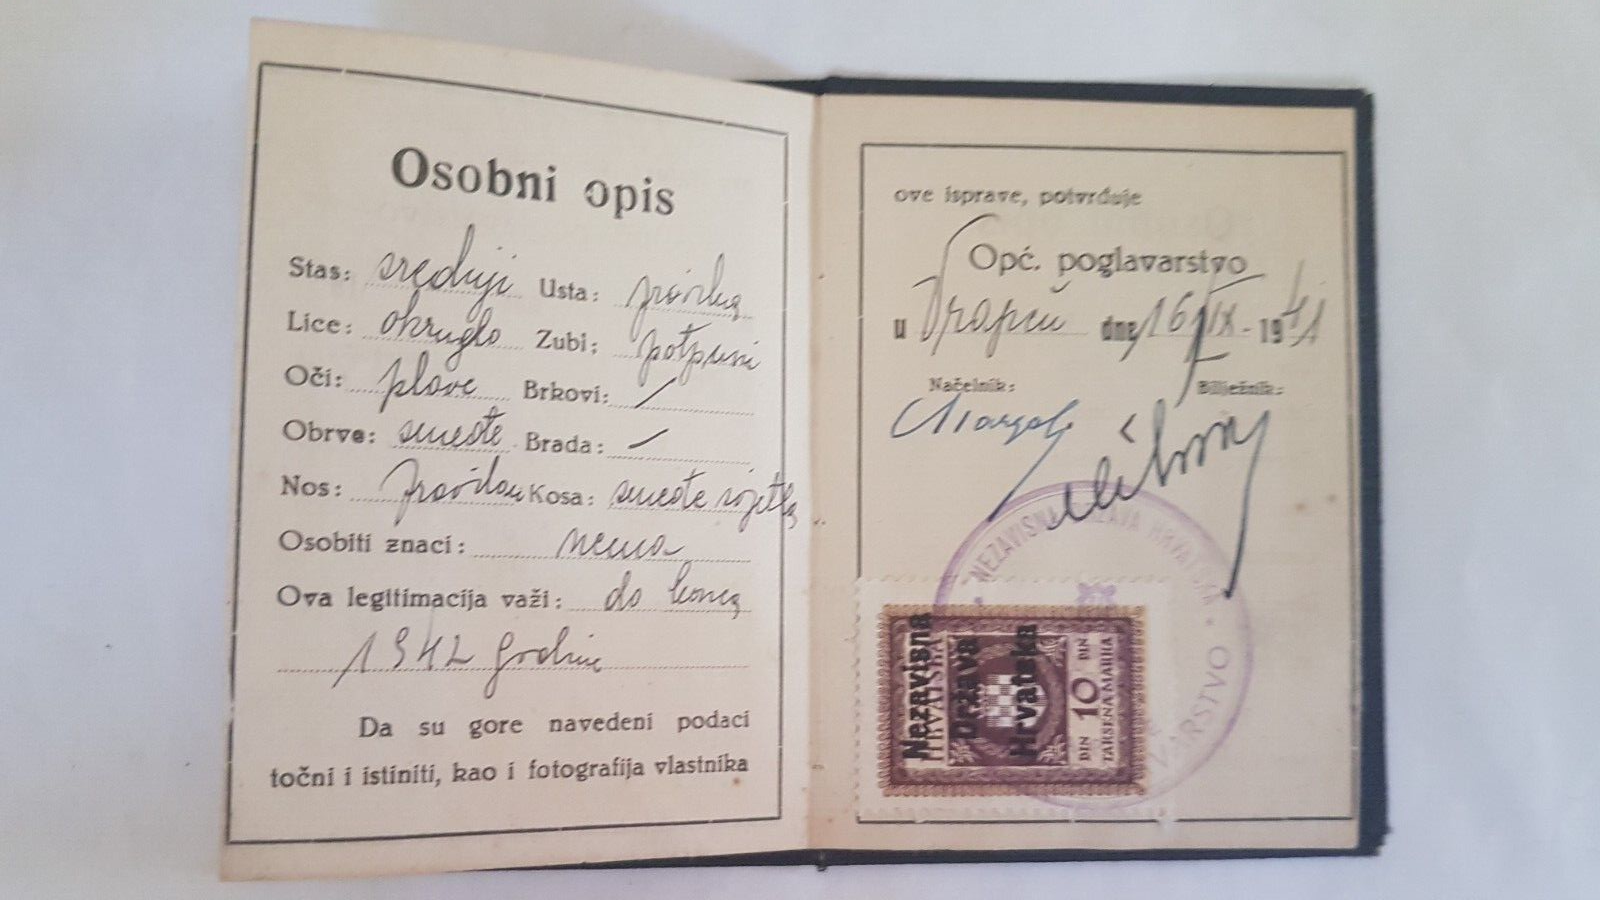 Osobni opis
Stas: srednji Usta: pravilna
Lice: okruglo Zubi: potpuni
Oči: plave Brkovi: /
Obrve: smeđe Brada: /
Nos: pravilan Kosa: smeđe svjetla
Osobiti znaci: nema
Ova legitimacija važi: do konca
1942 godine
Da su gore navedeni podaci
točni i istiniti, kao i fotografija vlastnika
ove isprave, potvrđuje
Opć. poglavarstvo
u dne 16/IX - 1941
Načelnik: Bilježnik:
NEZAVISNA DRŽAVA HRVATSKA
VARSTVO
Nezavisna
Država
Hrvatska
HRVATSKA
DIN 10 DIN
TAKSENA MARKA